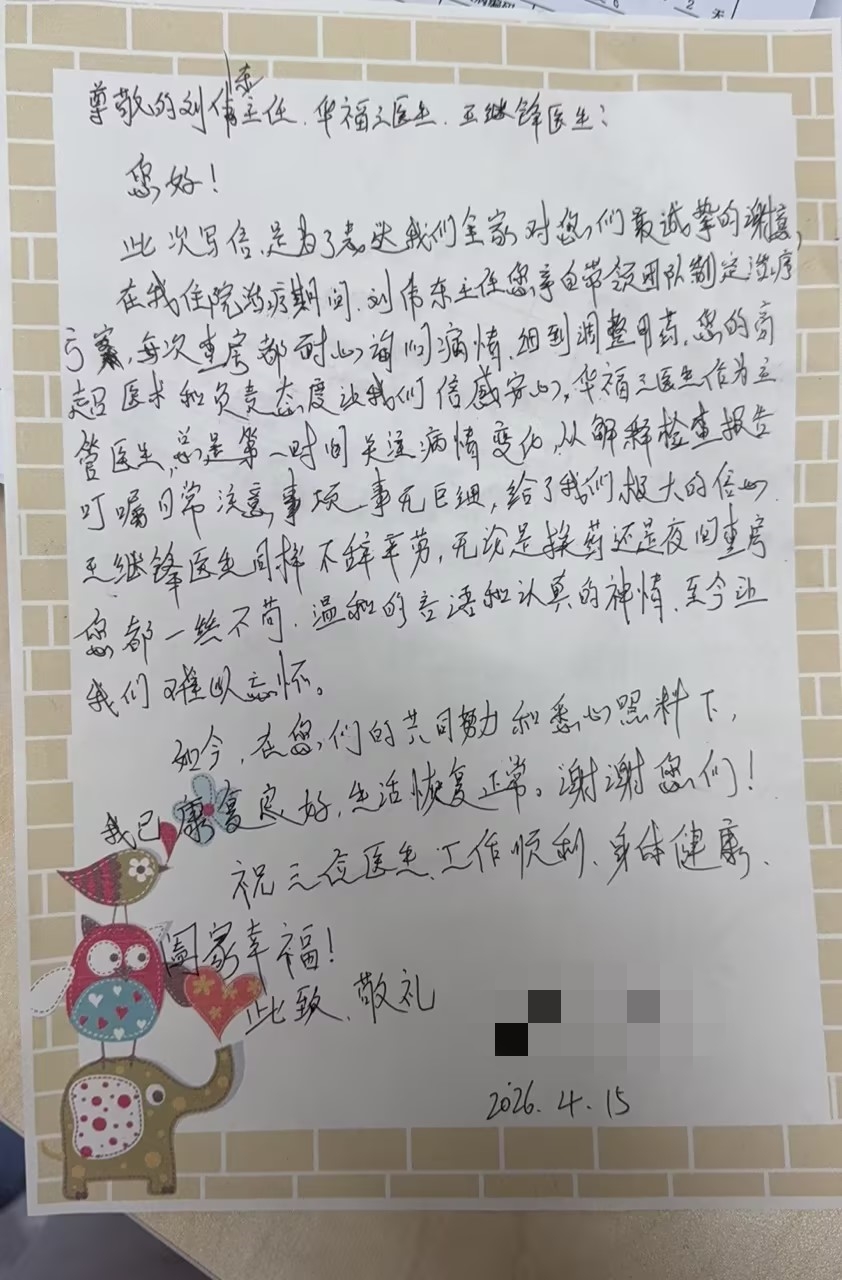 尊敬的刘伟东主任、华福三医生、王继锋医生：
您好！
此次写信，是为了表达我们全家对您们最诚挚的谢意，
在我住院治疗期间，刘伟东主任您亲自带领团队制定治疗
方案，每次查房都耐心询问病情，细到调整用药，您的高
超医术和负责态度让我们倍感安心，华福三医生作为主
管医生，总是第一时间关注病情变化，从解释检查报告
叮嘱日常注意事项事无巨细，给了我们极大的信心．
王继锋医生同样不辞辛劳，无论是换药还是夜间查房
您都一丝不苟．温和的言语和认真的神情．至今让
我们难以忘怀。
如今，在您们的共同努力和悉心照料下，
我已康复良好，生活恢复正常。谢谢您们！
祝三位医生、工作顺利、身体健康、
阖家幸福！
此致、敬礼
2026.4.15